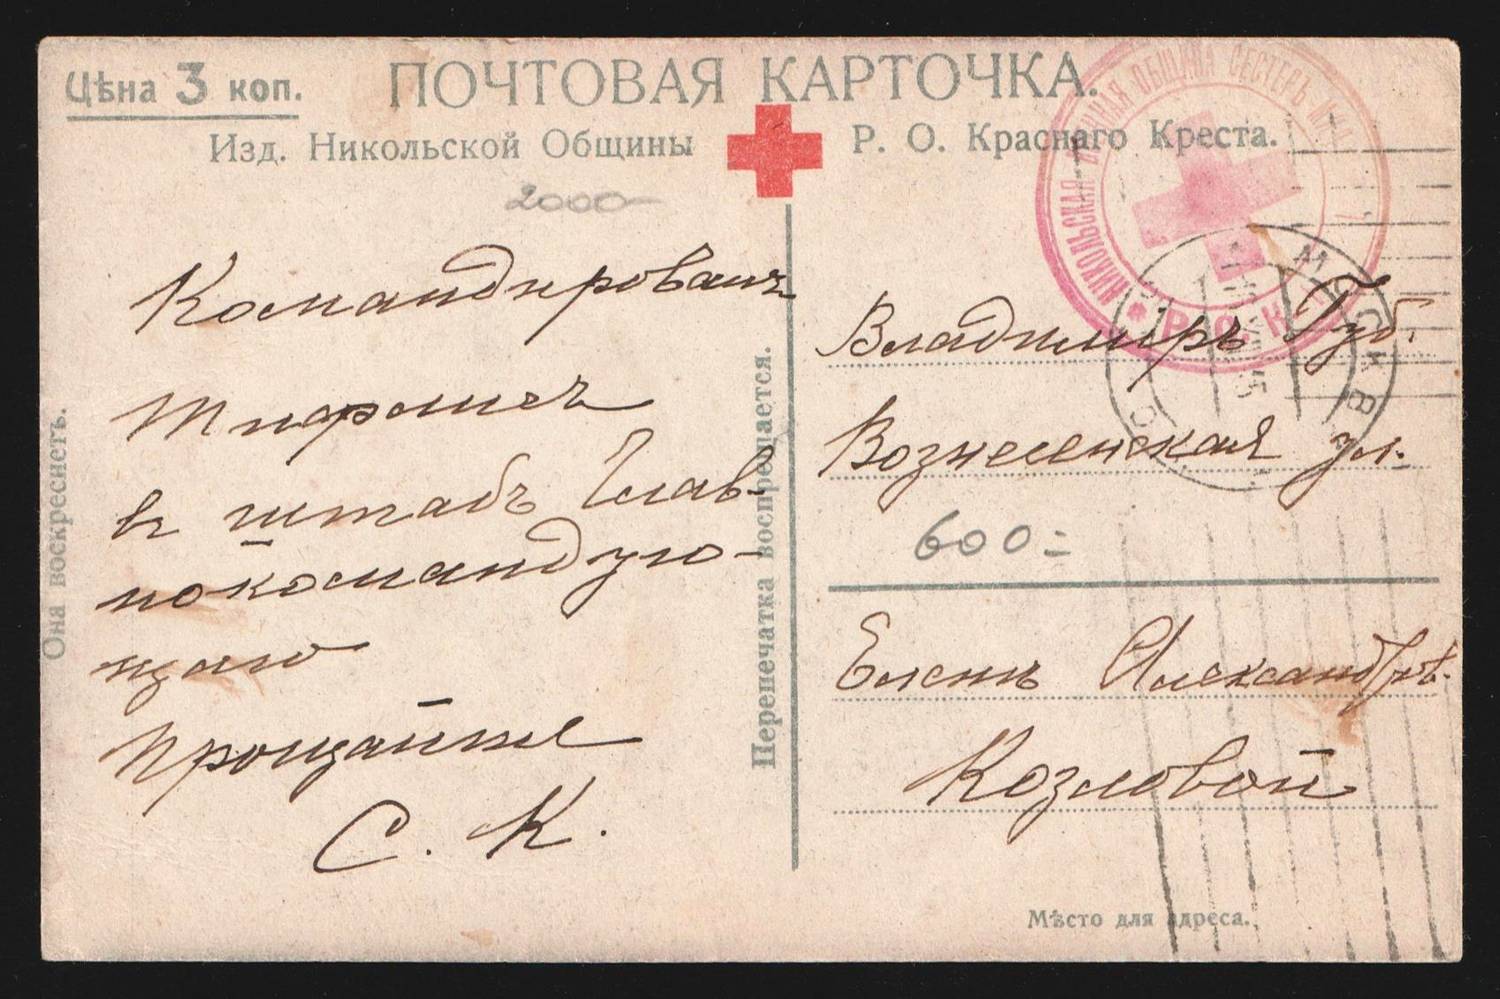 Цѣна 3 коп.
ПОЧТОВАЯ КАРТОЧКА.
Изд. Никольской Общины
Р. О. Краснаго Креста.
НИКОЛЬСКАЯ ОБЩИНА СЕСТЕРЪ
Р. О. К. К.
МОСКВА
2000-
Командированъ
Тифлисъ
въ штабъ Глав-
нокомандую-
щаго
Прощайте
С. К.
Она воскреснетъ.
Перепечатка воспрещается.
Владимиръ Губ.
Вознесенская ул.
600=
Еленѣ Александрвѣ
Козловой
Мѣсто для адреса.